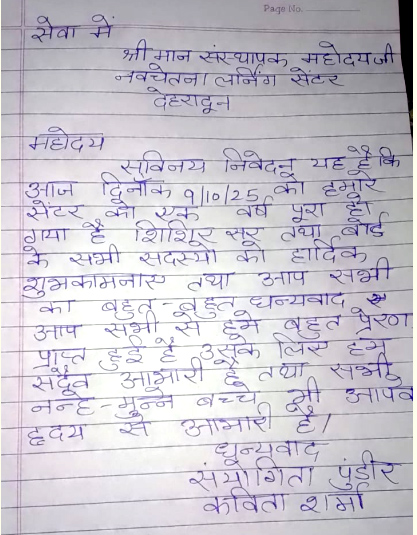 Page No.
सेवा में
श्री मान संस्थापक महोदय जी
नवचेतना लर्निंग सेंटर
देहरादून
महोदय
सविनय निवेदन यह है कि
आज दिनाँक 9/10/25 को हमारे
सेंटर को एक वर्ष पूरा हो
गया है शिशिर सर तथा बोर्ड
के सभी सदस्यो को हार्दिक
शुभकामनाए तथा आप सभी
का बहुत-बहुत धन्यवाद
आप सभी से हमे बहुत प्रेरणा
प्राप्त हुई है उसके लिए हम
सदैव आभारी है तथा सभी
नन्हे-मुन्ने बच्चे भी आपके
हृदय से आभारी है।
धन्यवाद
संयोगिता पुंडीर
कविता शर्मा